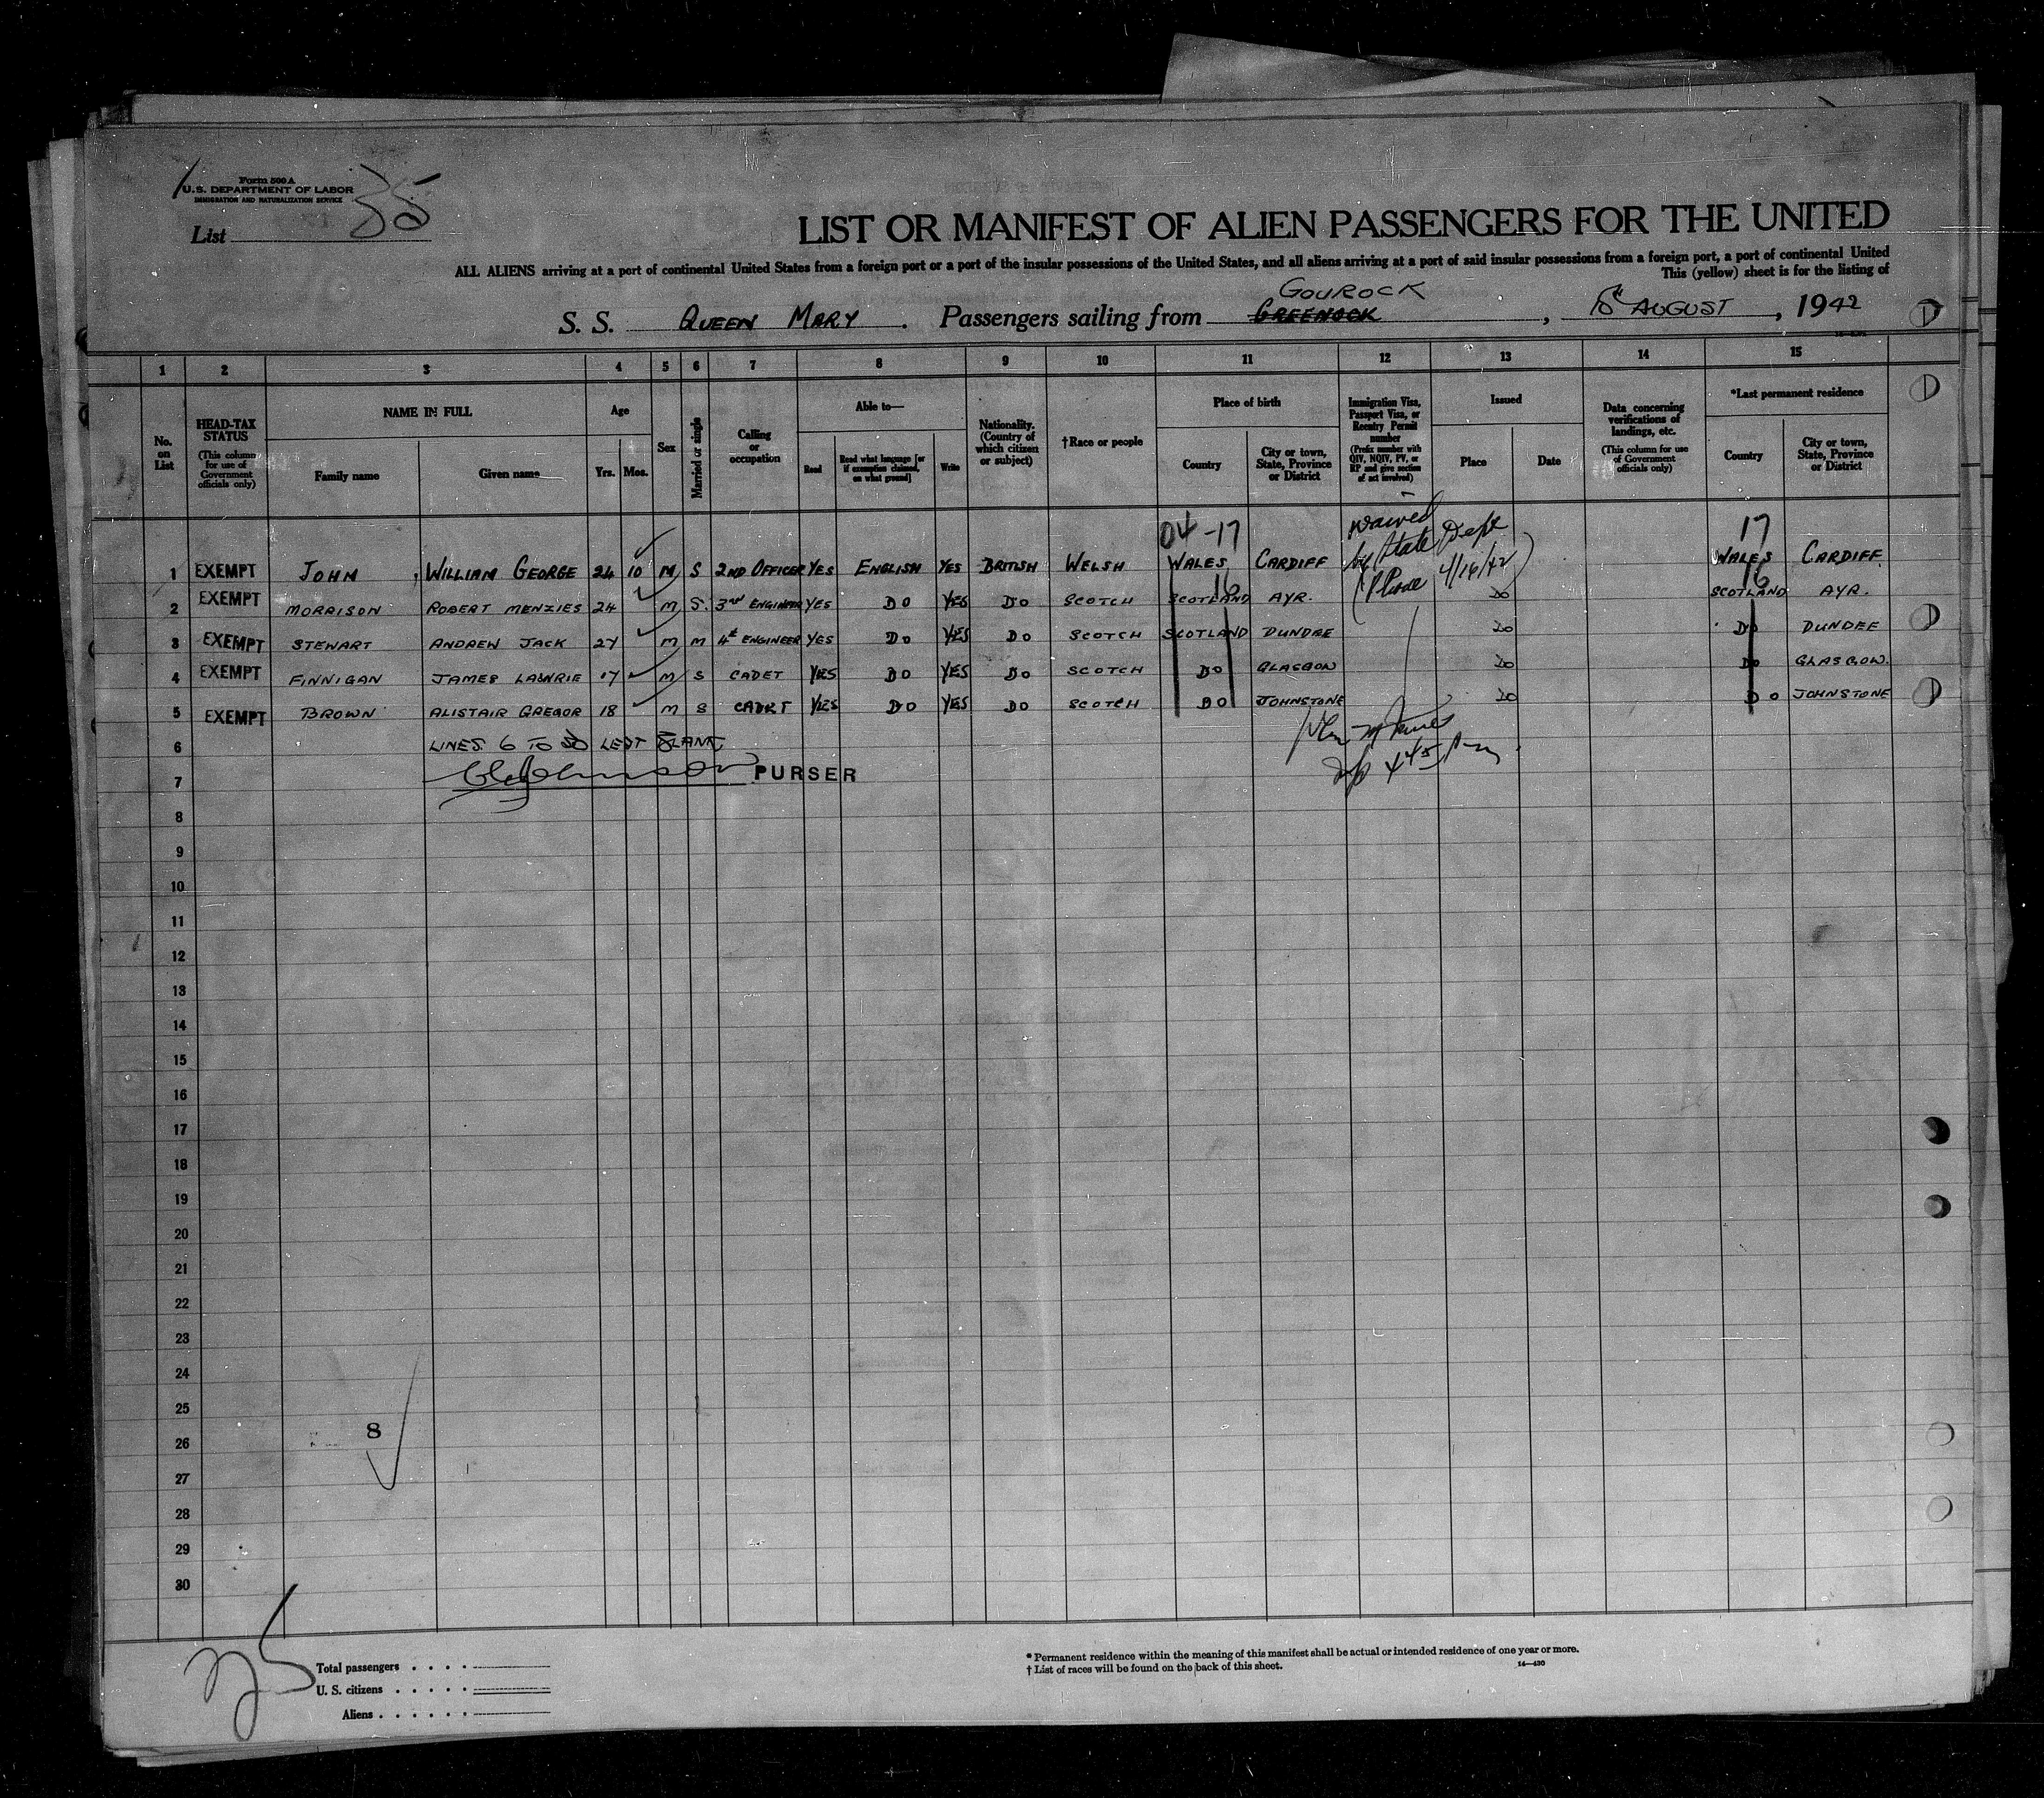 Form 500 A
U.S. DEPARTMENT OF LABOR
IMMIGRATION AND NATURALIZATION SERVICE
List 35
LIST OR MANIFEST OF ALIEN PASSENGERS FOR THE UNITED
ALL ALIENS arriving at a port of continental United States from a foreign port or a port of the insular possessions of the United States, and all aliens arriving at a port of said insular possessions from a foreign port, a port of continental United
This (yellow) sheet is for the listing of
GOUROCK
S. S. QUEEN MARY. Passengers sailing from GREENOCK, AUGUST, 1942
1 2 3 4 5 6 7 8 9 10 11 12 13 14 15
No. on List
HEAD-TAX STATUS (This column for use of Government officials only)
NAME IN FULL
Family name
Given name
Age
Yrs. Mos.
Sex
Married or single
Calling or occupation
Able to—
Read
Read what language [or if exemption claimed, on what ground]
Write
Nationality. (Country of which citizen or subject)
†Race or people
Place of birth
Country
City or town, State, Province or District
Immigration Visa, Passport Visa, or Reentry Permit number (Prefix number with QIV, NQIV, PV, or RP and give section of act involved)
Issued
Place
Date
Data concerning verifications of landings, etc. (This column for use of Government officials only)
*Last permanent residence
Country
City or town, State, Province or District
04-17 waived 17
by State Dept
1 EXEMPT JOHN, WILLIAM GEORGE 24 10 M S 2ND OFFICER YES ENGLISH YES BRITISH WELSH WALES CARDIFF WALES CARDIFF
16 4/16/42 16
2 EXEMPT MORRISON ROBERT MENZIES 24 M S. 3RD ENGINEER YES DO YES DO SCOTCH SCOTLAND AYR. DO SCOTLAND AYR.
3 EXEMPT STEWART ANDREW JACK 27 M M 4th ENGINEER YES DO YES DO SCOTCH SCOTLAND DUNDEE DO DO DUNDEE
4 EXEMPT FINNIGAN JAMES LAWRIE 17 M S CADET YES DO YES DO SCOTCH DO GLASGOW DO DO GLASGOW.
5 EXEMPT BROWN ALISTAIR GREGOR 18 M S CADET YES DO YES DO SCOTCH DO JOHNSTONE DO DO JOHNSTONE
6 LINES 6 TO 30 LEFT BLANK
7 PURSER
8
9
10
11
12
13
14
15
16
17
18
19
20
21
22
23
24
25
8
26
27
28
29
30
Total passengers
U. S. citizens
Aliens
* Permanent residence within the meaning of this manifest shall be actual or intended residence of one year or more.
† List of races will be found on the back of this sheet.
14—430